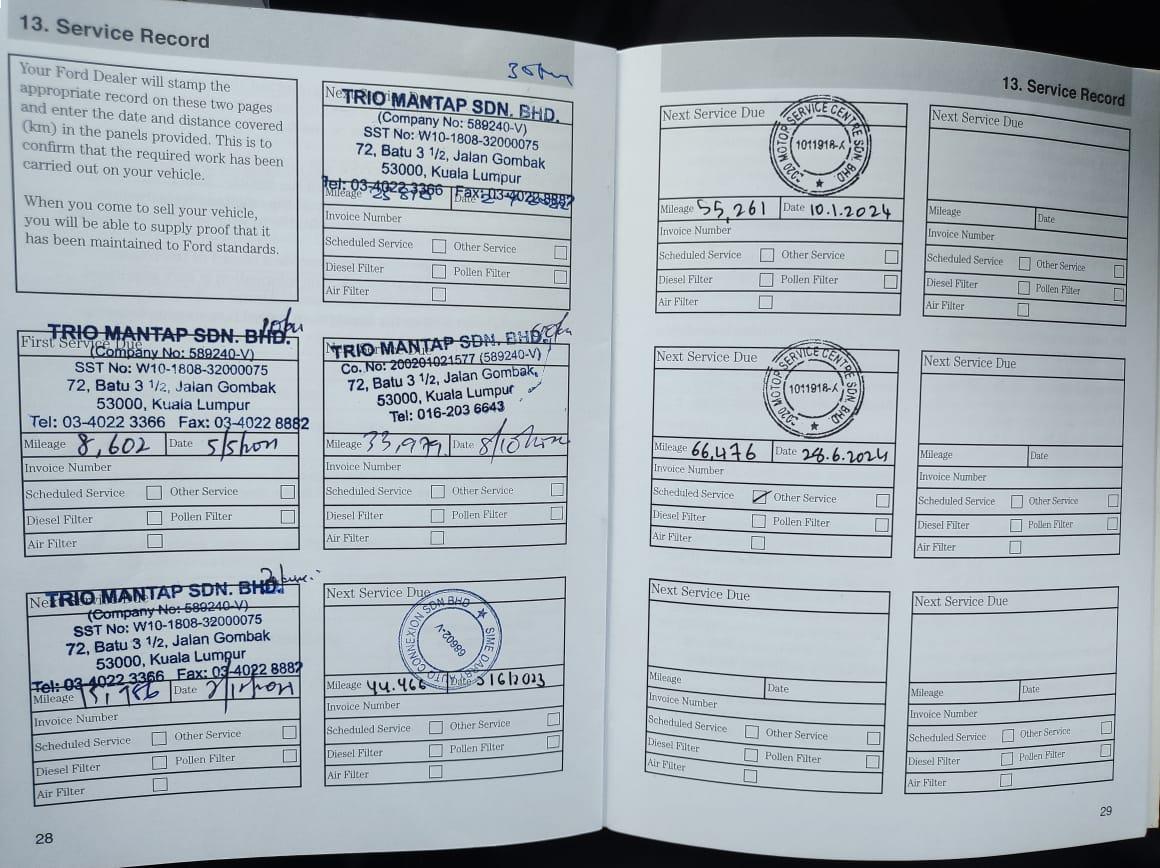 13. Service Record
Your Ford Dealer will stamp the
appropriate record on these two pages
and enter the date and distance covered
(km) in the panels provided. This is to
confirm that the required work has been
carried out on your vehicle.
When you come to sell your vehicle,
you will be able to supply proof that it
has been maintained to Ford standards.
First Service Due
TRIO MANTAP SDN. BHD.
(Company No: 589240-V)
SST No: W10-1808-32000075
72, Batu 3 1/2, Jalan Gombak
53000, Kuala Lumpur
Tel: 03-4022 3366 Fax: 03-4022 8882
Mileage 8,602 Date
Invoice Number
Scheduled Service Other Service
Diesel Filter Pollen Filter
Air Filter
TRIO MANTAP SDN. BHD.
(Company No: 589240-V)
SST No: W10-1808-32000075
72, Batu 3 1/2, Jalan Gombak
53000, Kuala Lumpur
Tel: 03-4022 3366 Fax: 03-4022 8882
Mileage Date
Invoice Number
Scheduled Service Other Service
Diesel Filter Pollen Filter
Air Filter
28
TRIO MANTAP SDN. BHD.
(Company No: 589240-V)
SST No: W10-1808-32000075
72, Batu 3 1/2, Jalan Gombak
53000, Kuala Lumpur
Tel: 03-4022 3366 Fax: 03-4022 8882
Mileage Date
Invoice Number
Scheduled Service Other Service
Diesel Filter Pollen Filter
Air Filter
TRIO MANTAP SDN. BHD.
Co. No: 200201021577 (589240-V)
72, Batu 3 1/2, Jalan Gombak,
53000, Kuala Lumpur
Tel: 016-203 6643
Mileage 33,979 Date
Invoice Number
Scheduled Service Other Service
Diesel Filter Pollen Filter
Air Filter
Next Service Due
SIME DARBY AUTO CONNEXION SDN BHD
68602-V
Mileage 44.466 Date
Invoice Number
Scheduled Service Other Service
Diesel Filter Pollen Filter
Air Filter
13. Service Record
Next Service Due
2020 MOTOR SERVICE CENTRE SDN. BHD
1011918-X
Mileage 55,261 Date 10.1.2024
Invoice Number
Scheduled Service Other Service
Diesel Filter Pollen Filter
Air Filter
Next Service Due
2020 MOTOR SERVICE CENTRE SDN. BHD
1011918-X
Mileage 66,476 Date 28.6.2024
Invoice Number
Scheduled Service Other Service
Diesel Filter Pollen Filter
Air Filter
Next Service Due
Mileage Date
Invoice Number
Scheduled Service Other Service
Diesel Filter Pollen Filter
Air Filter
Next Service Due
Mileage Date
Invoice Number
Scheduled Service Other Service
Diesel Filter Pollen Filter
Air Filter
Next Service Due
Mileage Date
Invoice Number
Scheduled Service Other Service
Diesel Filter Pollen Filter
Air Filter
Next Service Due
Mileage Date
Invoice Number
Scheduled Service Other Service
Diesel Filter Pollen Filter
Air Filter
29